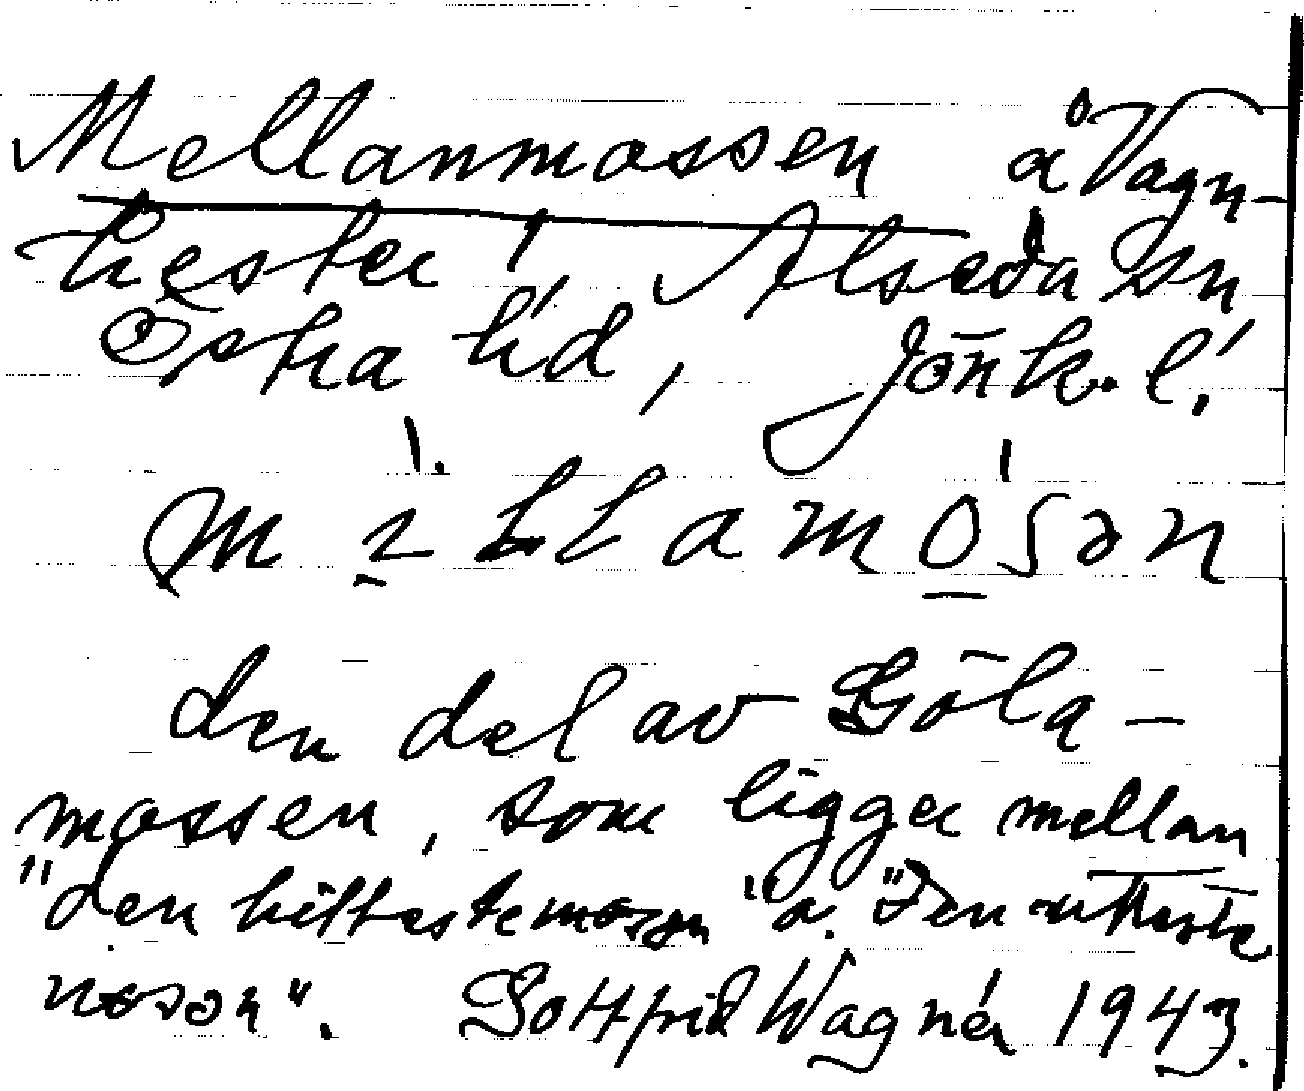 Mellanmossen å Vagn-
hester, Alseda sn
Östra hd, Jönk. l.
den del av Göla-
mossen, som ligger mellan
"den hittestemosen" o. "den utterste
mosen". Gottfrid Wagnér 1943.